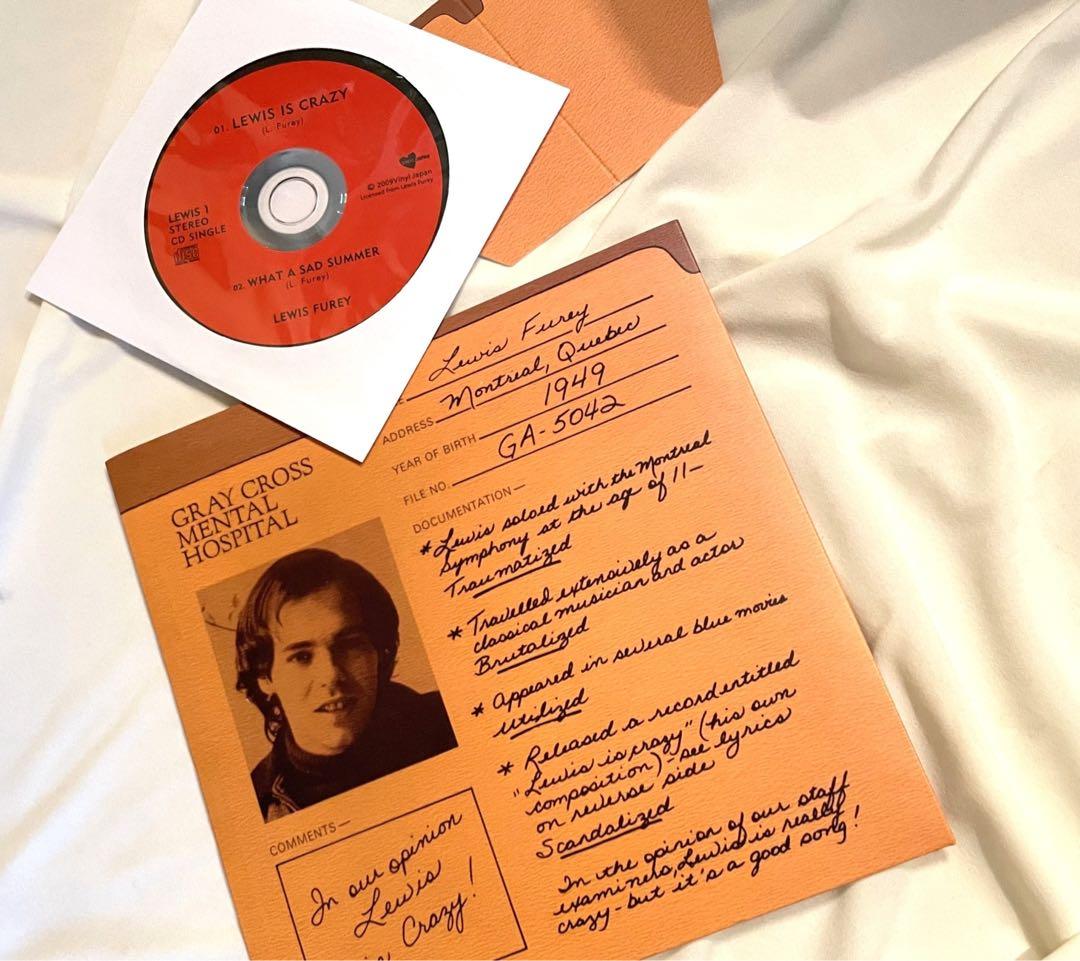 01. LEWIS IS CRAZY
(L. Furey)
© 2009 Vinyl Japan
Licensed from Lewis Furey
LEWIS 1
STEREO
CD SINGLE
02. WHAT A SAD SUMMER
(L. Furey)
LEWIS FUREY
Lewis Furey
ADDRESS Montreal, Quebec
YEAR OF BIRTH 1949
FILE NO. GA-5042
GRAY CROSS
MENTAL
HOSPITAL
DOCUMENTATION—
* Lewis soloed with the Montreal
Symphony at the age of 11—
Traumatized
* Travelled extensively as a
classical musician and actor
Brutalized
* Appeared in several blue movies
Utilized
* Released a record entitled
"Lewis is crazy" (his own
composition)-see lyrics
on reverse side
Scandalized
In the opinion of our staff
examiners, Lewis is really
crazy-but it's a good song!
COMMENTS—
In our opinion
Lewis
is Crazy!